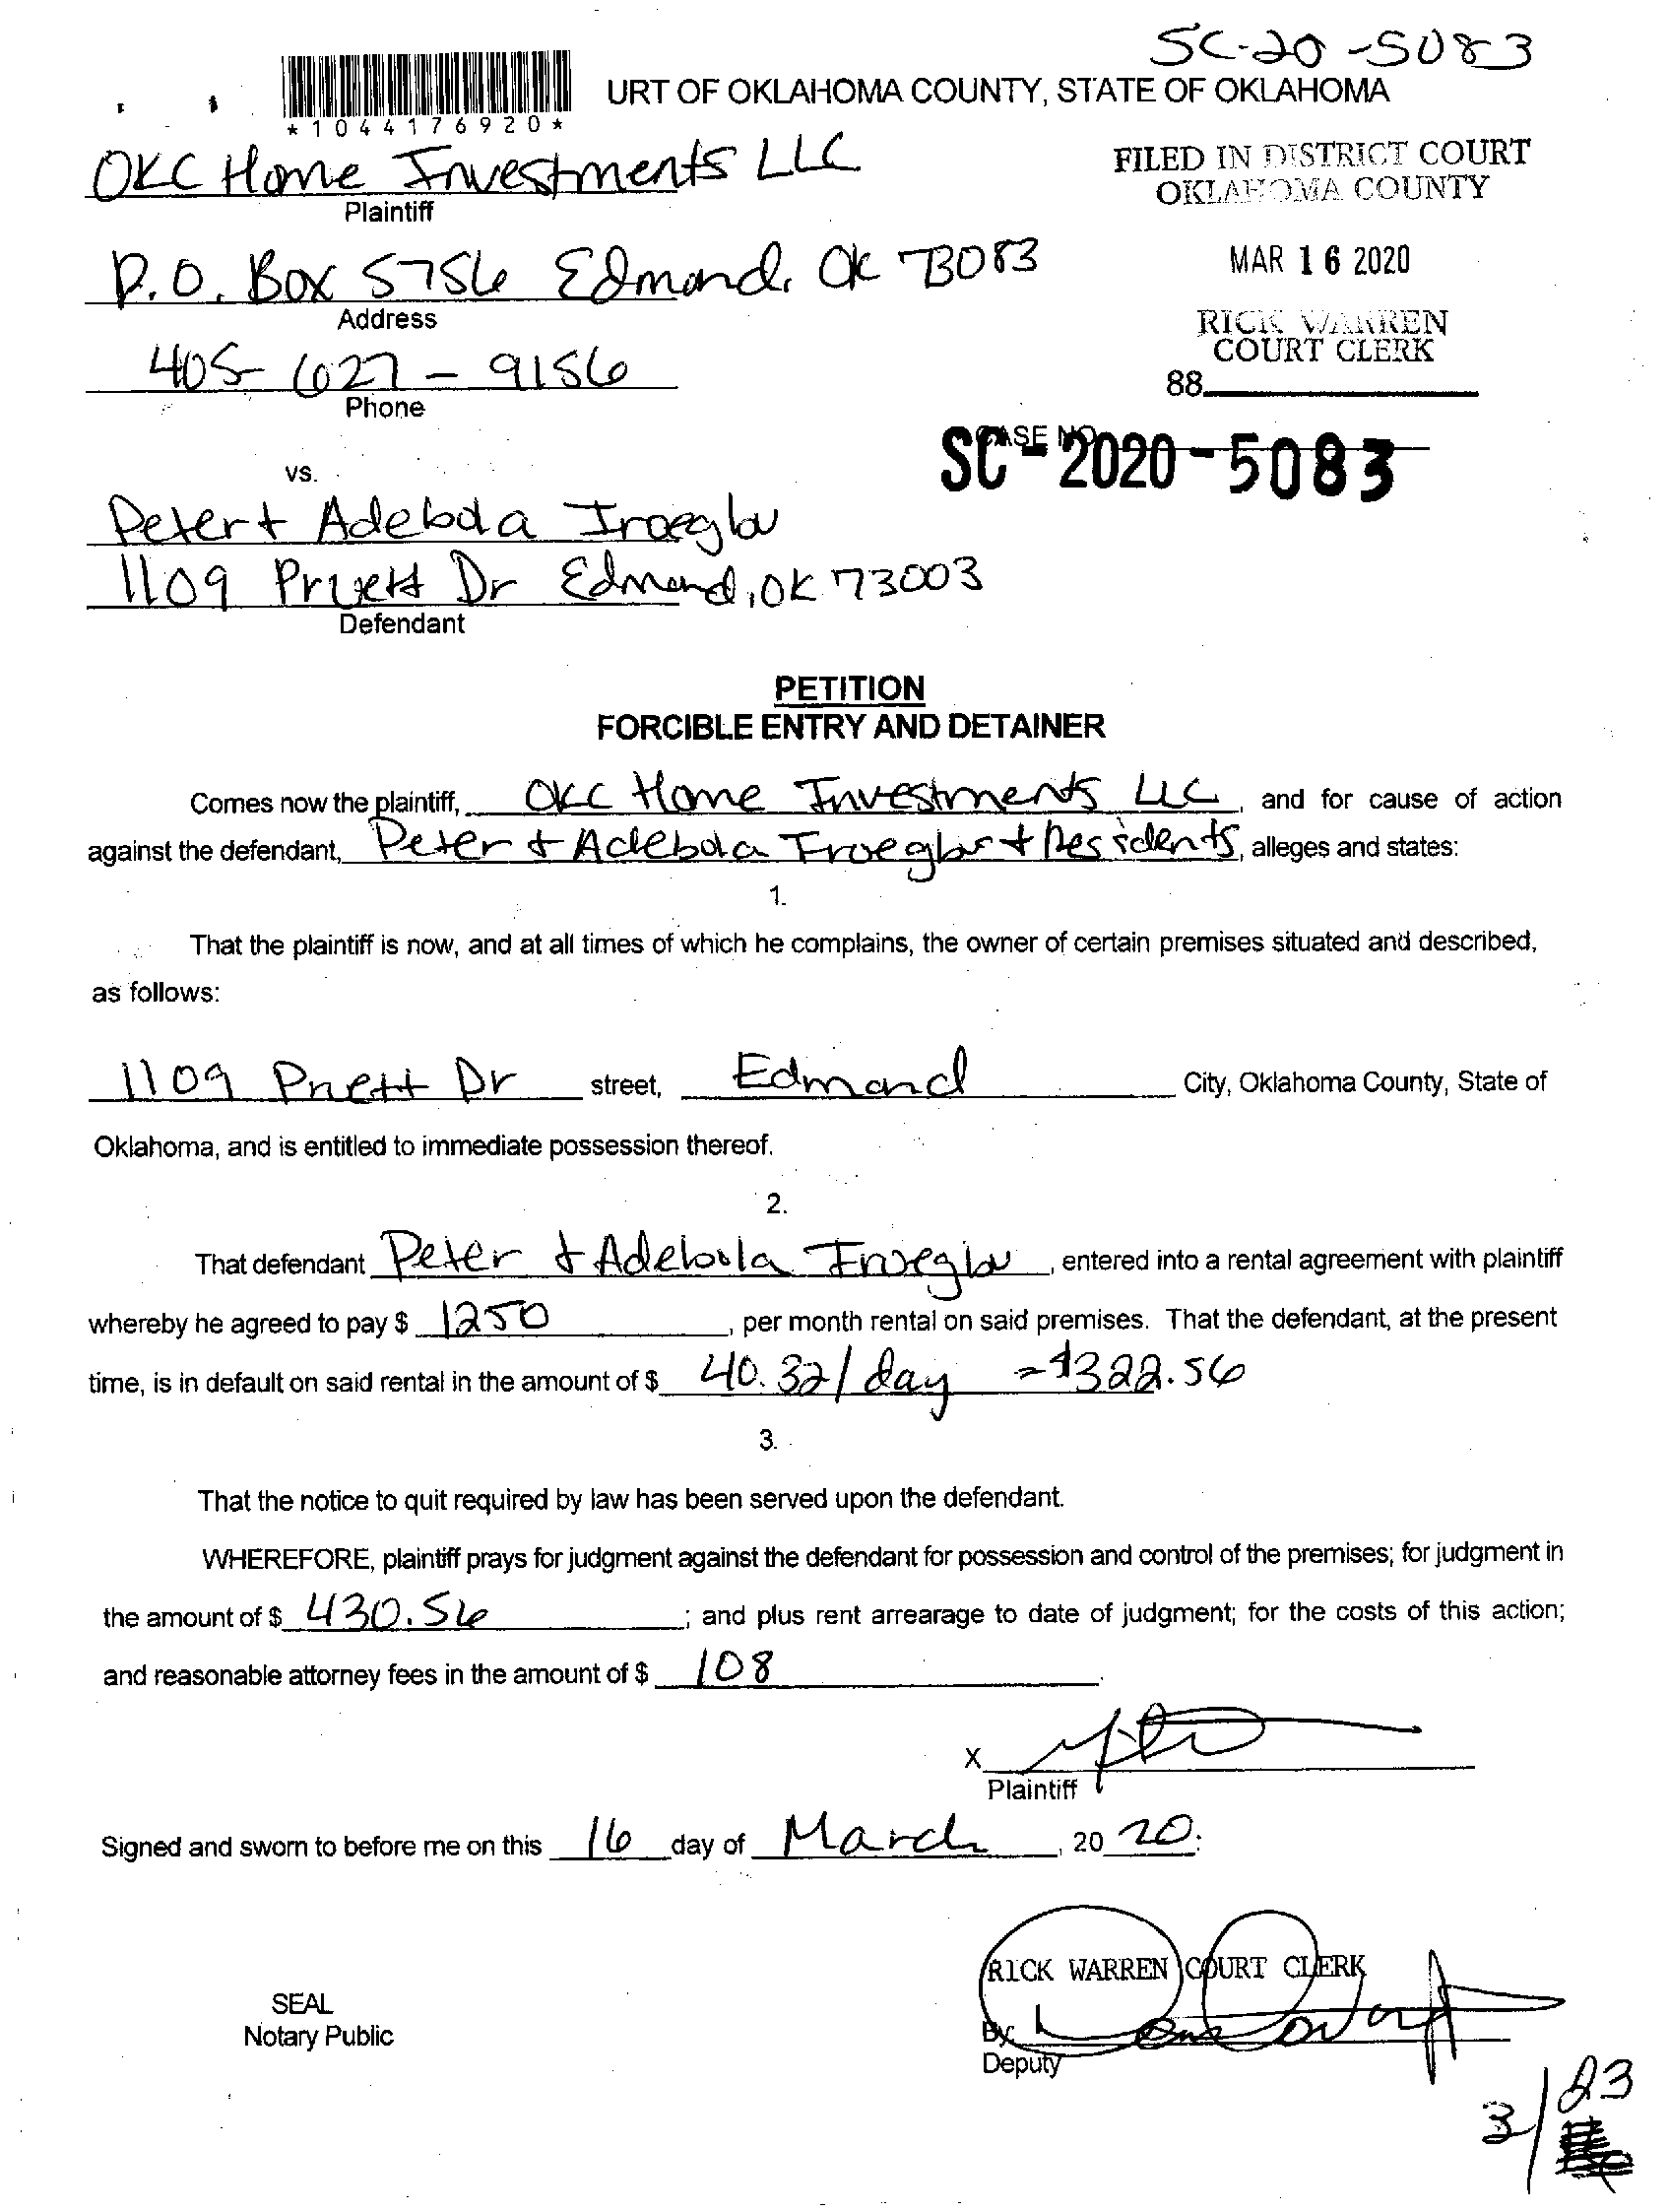 SC-20-5083
URT OF OKLAHOMA COUNTY, STATE OF OKLAHOMA
*1044176920*
OKC Home Investments LLC
Plaintiff
FILED IN DISTRICT COURT
OKLAHOMA COUNTY
P.O. Box 5756 Edmond, OK 73083
Address
MAR 16 2020
RICK WARREN
COURT CLERK
405-627-9156
Phone
88
CASE NO.
SC-2020-5083
vs.
Peter + Adebola
1109 Pruett Dr Edmond, OK 73003
Defendant
PETITION
FORCIBLE ENTRY AND DETAINER
Comes now the plaintiff, OKC Home Investments LLC, and for cause of action
against the defendant, Peter + Adebola + Residents, alleges and states:
1.
That the plaintiff is now, and at all times of which he complains, the owner of certain premises situated and described,
as follows:
1109 Pruett Dr street, Edmond City, Oklahoma County, State of
Oklahoma, and is entitled to immediate possession thereof.
2.
That defendant Peter + Adebola, entered into a rental agreement with plaintiff
whereby he agreed to pay $ 1250, per month rental on said premises. That the defendant, at the present
time, is in default on said rental in the amount of $ 40.32/day = $322.56
3.
That the notice to quit required by law has been served upon the defendant.
WHEREFORE, plaintiff prays for judgment against the defendant for possession and control of the premises; for judgment in
the amount of $ 430.56; and plus rent arrearage to date of judgment; for the costs of this action;
and reasonable attorney fees in the amount of $ 108.
X
Plaintiff
Signed and sworn to before me on this 16 day of March, 20 20.
RICK WARREN COURT CLERK
SEAL
Notary Public
By
Deputy
3/23